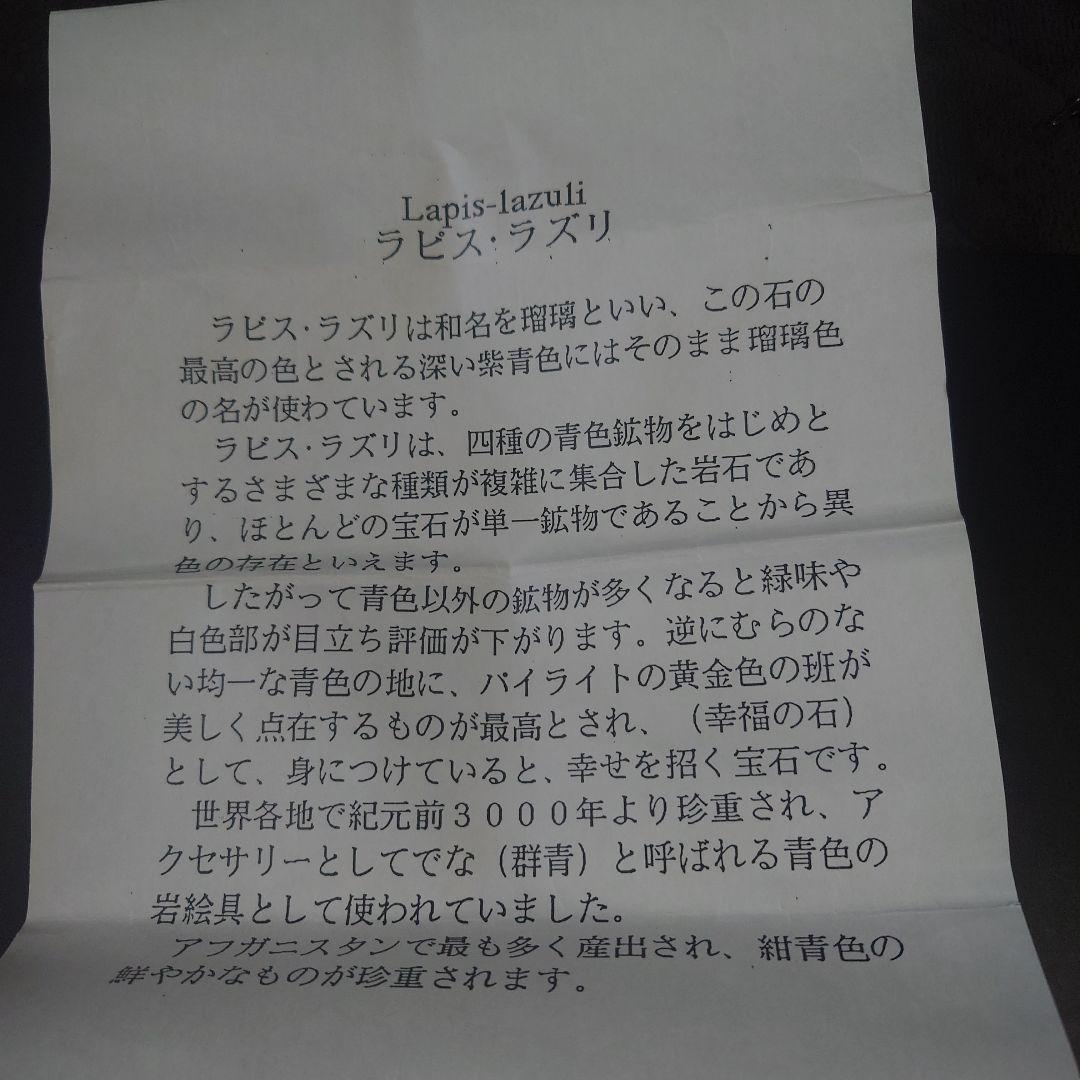 Lapis-lazuli
ラピス・ラズリ
ラピス・ラズリは和名を瑠璃といい、この石の
最高の色とされる深い紫青色にはそのまま瑠璃色
の名が使わています。
ラピス・ラズリは、四種の青色鉱物をはじめと
するさまざまな種類が複雑に集合した岩石であ
り、ほとんどの宝石が単一鉱物であることから異
色の存在といえます。
したがって青色以外の鉱物が多くなると緑味や
白色部が目立ち評価が下がります。逆にむらのな
い均一な青色の地に、パイライトの黄金色の班が
美しく点在するものが最高とされ、（幸福の石）
として、身につけていると、幸せを招く宝石です。
世界各地で紀元前３０００年より珍重され、ア
クセサリーとしてでな（群青）と呼ばれる青色の
岩絵具として使われていました。
アフガニスタンで最も多く産出され、紺青色の
鮮やかなものが珍重されます。